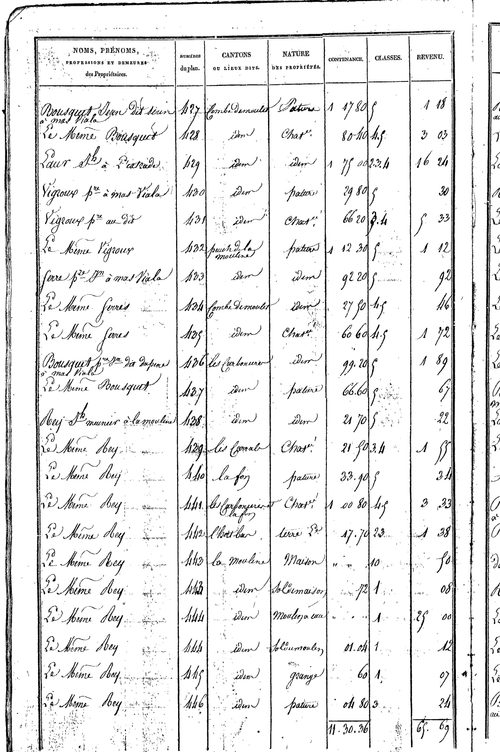 NOMS, PRÉNOMS, PROFESSIONS ET DEMEURES des Propriétaires. | NUMÉROS du plan. | CANTONS OU LIEUX DITS. | NATURE DES PROPRIÉTÉS. | CONTENANCE. | CLASSES. | REVENU.
Bousquet dit à mas Viala 427 Combe demoulet Pature 1 17 80 5 1 18
Le Même Bousquet 428 idem Chat. 80 40 4.5 3 03
Laur à 429 idem idem 1 75 00 2.3.4 16 24
Vigroux à mas Viala 430 idem pature 29 80 5 30
Vigroux au dit 431 idem Chat. 66 20 3.4 5 33
Le Même Vigroux 432 puech de la mouline pature 1 12 30 5 1 12
ferre à mas Viala 433 idem idem 92 20 5 92
Le Même ferres 434 Combe demoulet idem 27 50 4.5 46
Le Même ferres 435 idem Chat. 60 60 4.5 1 72
Bousquet dit à mas Viala 436 les Carbonieres idem 99.20 5 1 89
Le Même Bousquet 437 idem pature 66.60 5 67
Rey meunier à la mouline 438 idem idem 21 70 5 22
Le Même Rey 439 les Chat. 21 50 3.4 1 55
Le Même Rey 440 la fon pature 33.90 5 34
Le Même Rey 441 les Carbonieres et la fon Chat. 1 00 80 4.5 3 33
Le Même Rey 442 terre 17.70 2.3 1 38
Le Même Rey 443 la mouline Maison " " 10 50
Le Même Rey 443 idem Sol du maison 72 1 08
Le Même Rey 444 idem Moulin à eau 1 25 00
Le Même Rey 444 idem Sol du moulin 01.04 1 12
Le Même Rey 445 idem grange 60 1 07
Le Même Rey 446 idem pature 04 80 3 24
11.30.36 65. 69